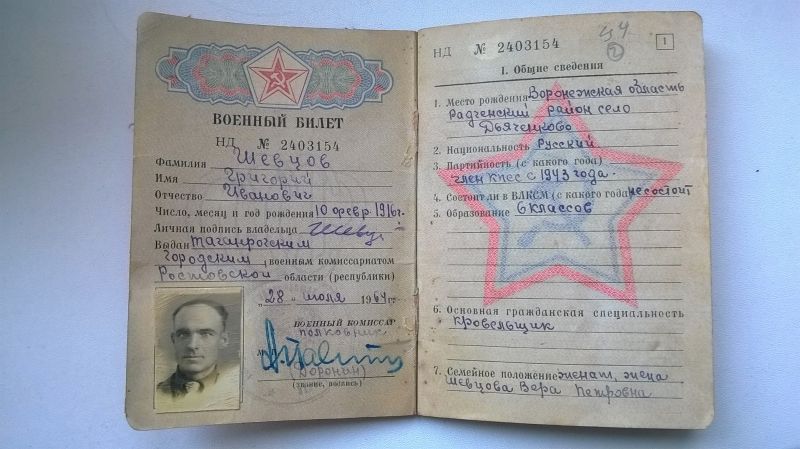 ВОЕННЫЙ БИЛЕТ
НД № 2403154
Фамилия Шевцов
Имя Григорий
Отчество Иванович
Число, месяц и год рождения 10 февр. 1916 г.
Личная подпись владельца Шевц
Выдан Таганрогским
городским военным комиссариатом
Ростовской области (республики)
„28" июля 1964 г.
ВОЕННЫЙ КОМИССАР
полковник
(Воронин)
(звание, подпись)
НД № 2403154
1
I. Общие сведения
1. Место рождения Воронежская область
Радченский район село
Дьяченково
2. Национальность Русский
3. Партийность (с какого года)
член КПСС с 1943 года.
4. Состоит ли в ВЛКСМ (с какого года) не состоит
5. Образование 6 классов
6. Основная гражданская специальность
кровельщик
7. Семейное положение женат, жена
Шевцова Вера Петровна